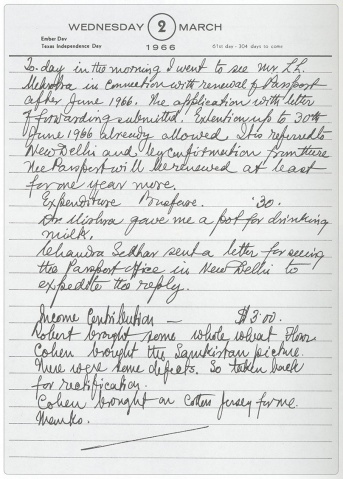 WEDNESDAY 2 MARCH
Ember Day
Texas Independence Day
1966
61st day - 304 days to come
To day in the morning I went to see Mr L.L.
Mehrotra in connection with renewal of Passport
after June 1966. The application with letter
of forwarding submitted. Extention up to 30th
June 1966 already allowed. It is referred to
New Delhi and by confirmation from there
the Passport will be renewed at least
for one year more.
Expenditure Busfare. '30.
Dr Mishra gave me a pot for drinking
milk.
Chandra Sekhar sent a letter for seeing
the Passport office in New Delhi to
expedite the reply.
Income Contribution — $3.00.
Robert brought some whole wheat Flour
Cohen brought the Samkirtan picture.
There were some defects. So taken back
for rectification.
Cohen brought on Cotton Jersey for me.